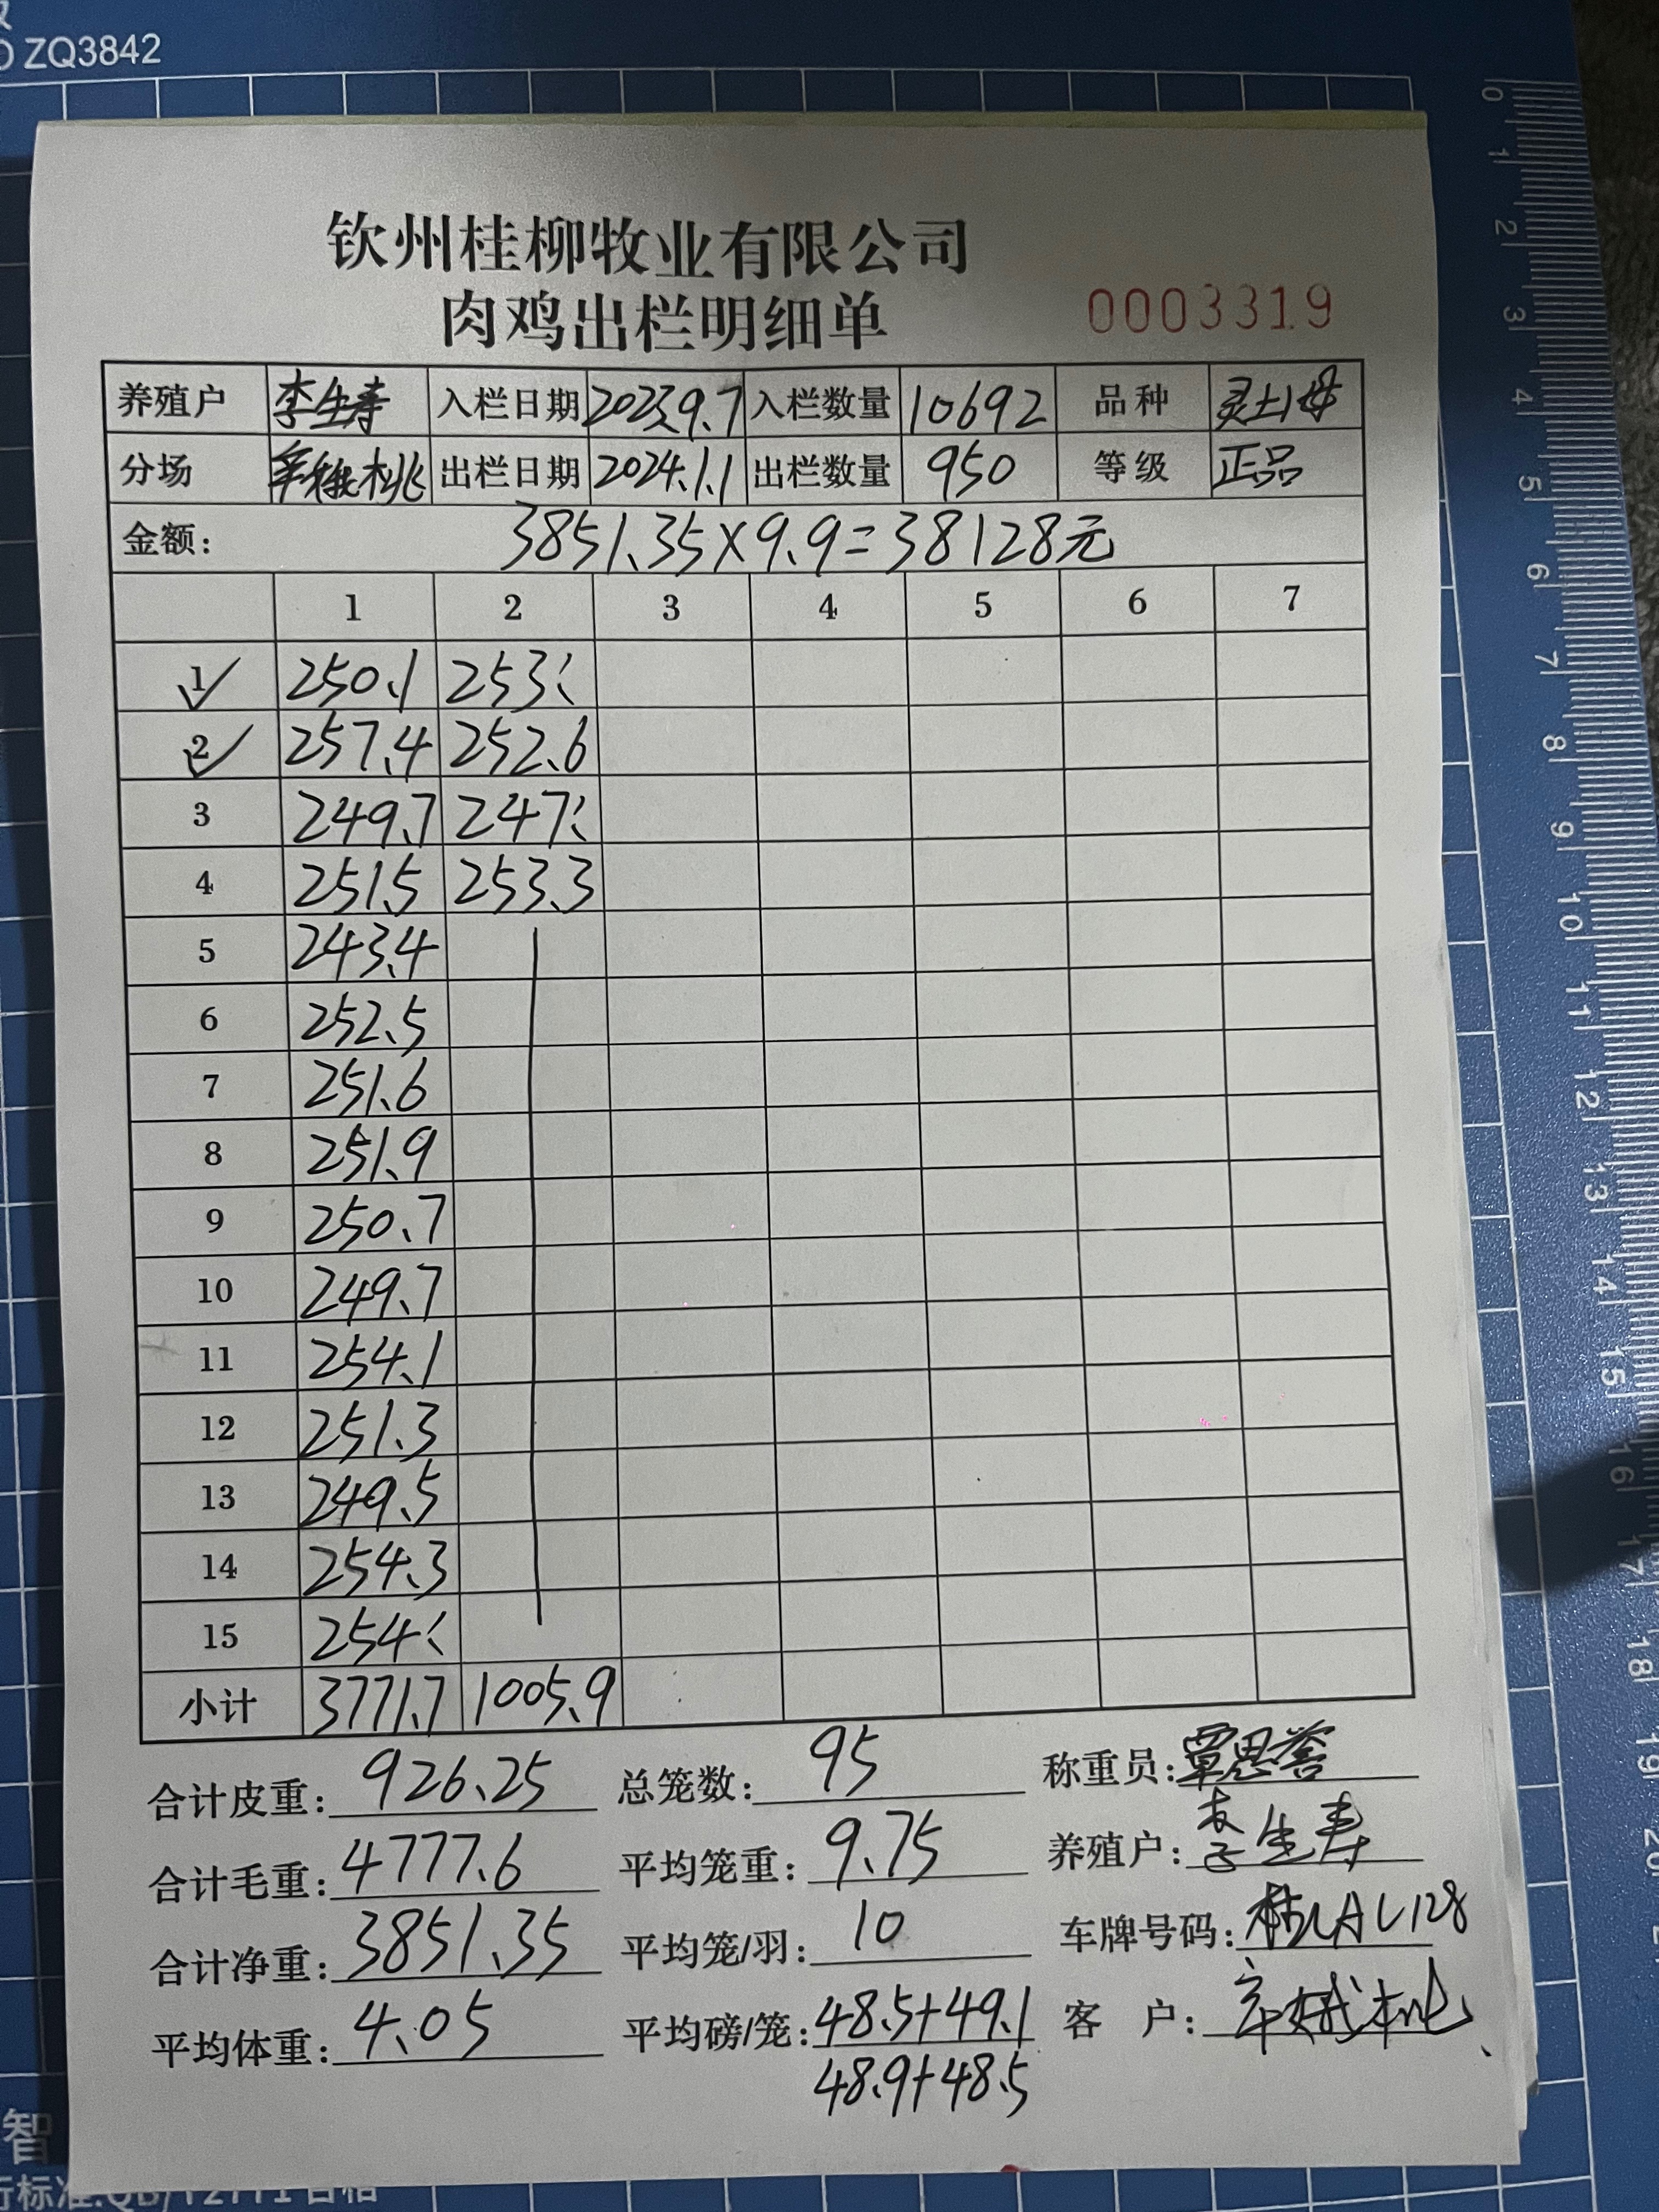 ZQ3842
钦州桂柳牧业有限公司
肉鸡出栏明细单
0003319
养殖户 李生寿 入栏日期 2023.9.7 入栏数量 10692 品种 灵土1母
分场 出栏日期 2024.1.1 出栏数量 950 等级 正品
金额: 3851.35×9.9=38128元
1 2 3 4 5 6 7
1 250.1 253、
2 257.4 252.6
3 249.7 247、
4 251.5 253.3
5 243.4
6 252.5
7 251.6
8 251.9
9 250.7
10 249.7
11 254.1
12 251.3
13 249.5
14 254.3
15 254、
小计 3771.7 1005.9
合计皮重: 926.25 总笼数: 95 称重员: 覃思誉
合计毛重: 4777.6 平均笼重: 9.75 养殖户: 李生寿
合计净重: 3851.35 平均笼/羽: 10 车牌号码:
平均体重: 4.05 平均磅/笼: 48.5+49.1 客 户:
48.9+48.5
0 1 2 3 4 5 6 7 8 9 10 11 12 13 14 15 16 17 18 19 20
智